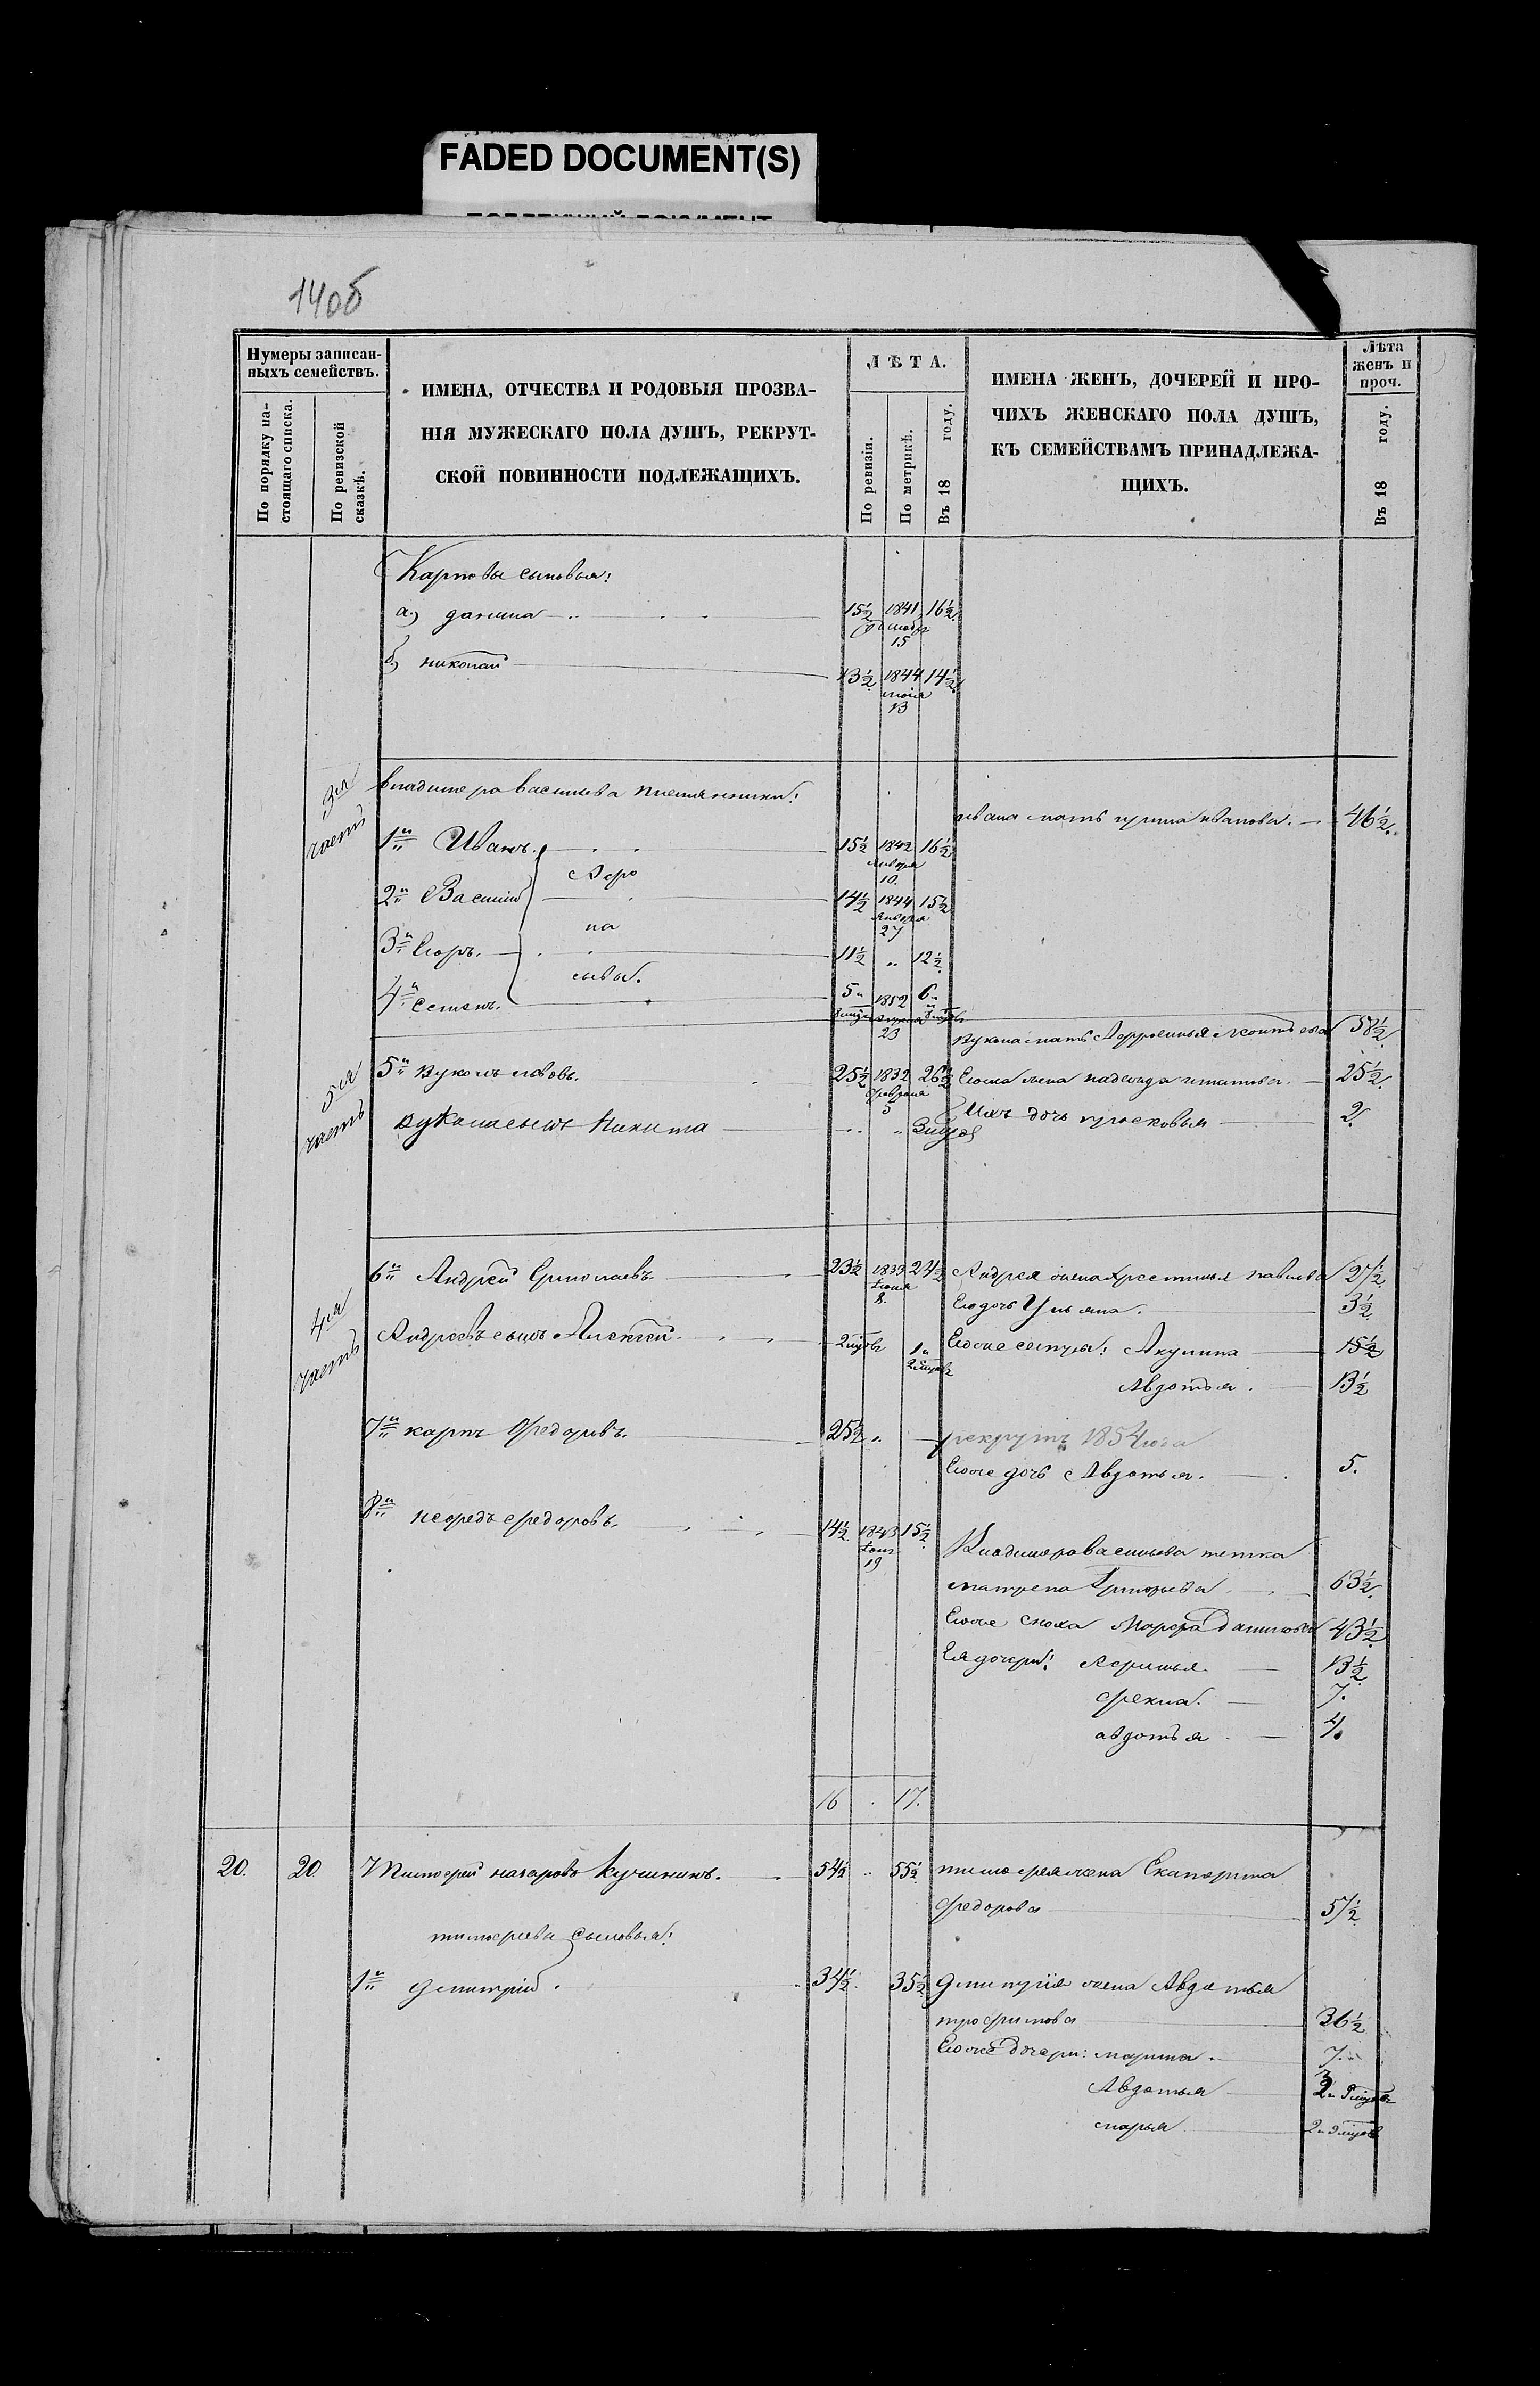 FADED DOCUMENT(S)
140б
Нумеры записан-
ныхъ семействъ.
По порядку на-
стоящаго списка.
По ревизской
сказкѣ.
ИМЕНА, ОТЧЕСТВА И РОДОВЫЯ ПРОЗВА-
НІЯ МУЖЕСКАГО ПОЛА ДУШЪ, РЕКРУТ-
СКОЙ ПОВИННОСТИ ПОДЛЕЖАЩИХЪ.
ЛѢТА.
По ревизіи.
По метрикѣ.
Въ 18 году.
ИМЕНА ЖЕНЪ, ДОЧЕРЕЙ И ПРО-
ЧИХЪ ЖЕНСКАГО ПОЛА ДУШЪ,
КЪ СЕМЕЙСТВАМЪ ПРИНАДЛЕЖА-
ЩИХЪ.
Лѣта
женъ и
проч.
Въ 18 году.
Карповы сыновья:
а) данила 15½ 1841 16½
15
б) николай 13½ 1844 14½
13
3ья часть
владимера васильева племянники:
ивана мать ирина иванова. 46½
1й Иванъ. 15½ 1842 16½
Января
10.
Афо
2й Василій 14½ 1844 15½
Января
27
на
3й Егоръ. 11½ „ 12½
сьевы.
4й Семенъ. 5 1852 6
23
вукола мать 58½
5я часть
5й Вуколъ львовъ. 25½ 1832 26½ Его жена надежда 25½
Февраля
5
вукола сынъ Никита Ихъ дочь прасковья 2.
4я часть
6й Андрей Ермолаевъ 23½ 1833 24½ Андрея жена Хрестинья павлова 27½
8.
Его дочь Ульяна. 3½
Андреевъ сынъ Алексей. Его же сестры: Акулина 15½
Авдотья. 13½
7й карпъ Федоровъ. 25½ „ рекрутъ 1854 года
Его же дочь Авдотья. 5.
8й нефедъ федоровъ. 14½ 1843 15½
19
Владимера васильева тетка
матрена Григорьева 63½
Его же сноха Марфа Данилова 43½
Ея дочери: Афимья. 13½
фекла. 7.
авдотья 4.
16 17.
20. 20 Тимофей назаровъ Кучинкинъ. 54½ „ 55½ тимофея жена Екатерина
федорова 57½
тимофеевы сыновья:
1й дмитрий. 34½ 35½ дмитрія жена Авдотья
трофимова 36½
Его же дочери: марина. 7.
Авдотья
марья